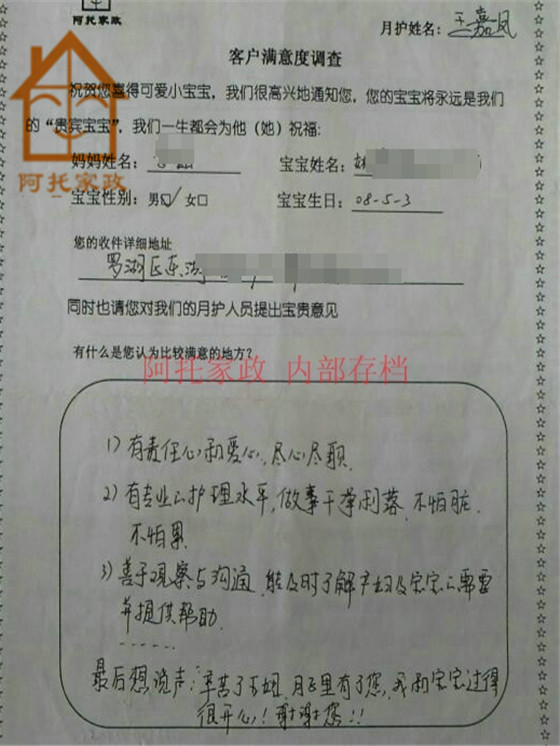 阿托家政
月护姓名：王嘉凤
客户满意度调查
祝贺您喜得可爱小宝宝，我们很高兴地通知您，您的宝宝将永远是我们
的“贵宾宝宝”，我们一生都会为他（她）祝福：
阿托家政
妈妈姓名：
宝宝姓名：
宝宝性别：男☑ 女□
宝宝生日：08-5-3
您的收件详细地址
罗湖区东
同时也请您对我们的月护人员提出宝贵意见
有什么是您认为比较满意的地方？
阿托家政 内部存档
1) 有责任心和爱心、尽心尽职.
2) 有专业的护理水平,做事干净利落.不怕脏.
不怕累
3) 善于观察与沟通.能及时了解产妇及宝宝的需要
并提供帮助.
......
最后想说声:辛苦了王姐.月子里有了您,我和宝宝过得
很开心!谢谢您!!